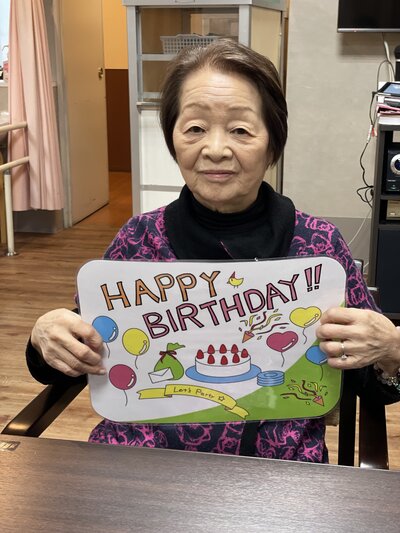 HAPPY
BIRTHDAY!!
Let's Party